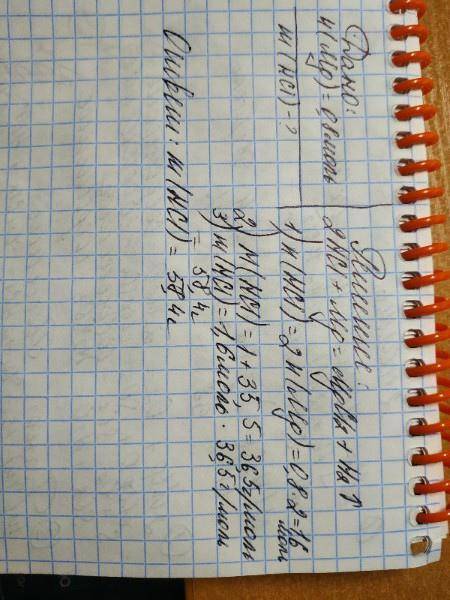 Дано:
n(Mg) = 0,8 моль
m(HCl) - ?
Решение:
2HCl + Mg = MgCl2 + H2↑
1) n(HCl) = 2n(Mg) = 0,8 · 2 = 1,6
моль
2) M(HCl) = 1 + 35,5 = 36,5 г/моль
3) m(HCl) = 1,6 моль · 36,5 г/моль
= 58,4г
Ответ: m(HCl) = 58,4г